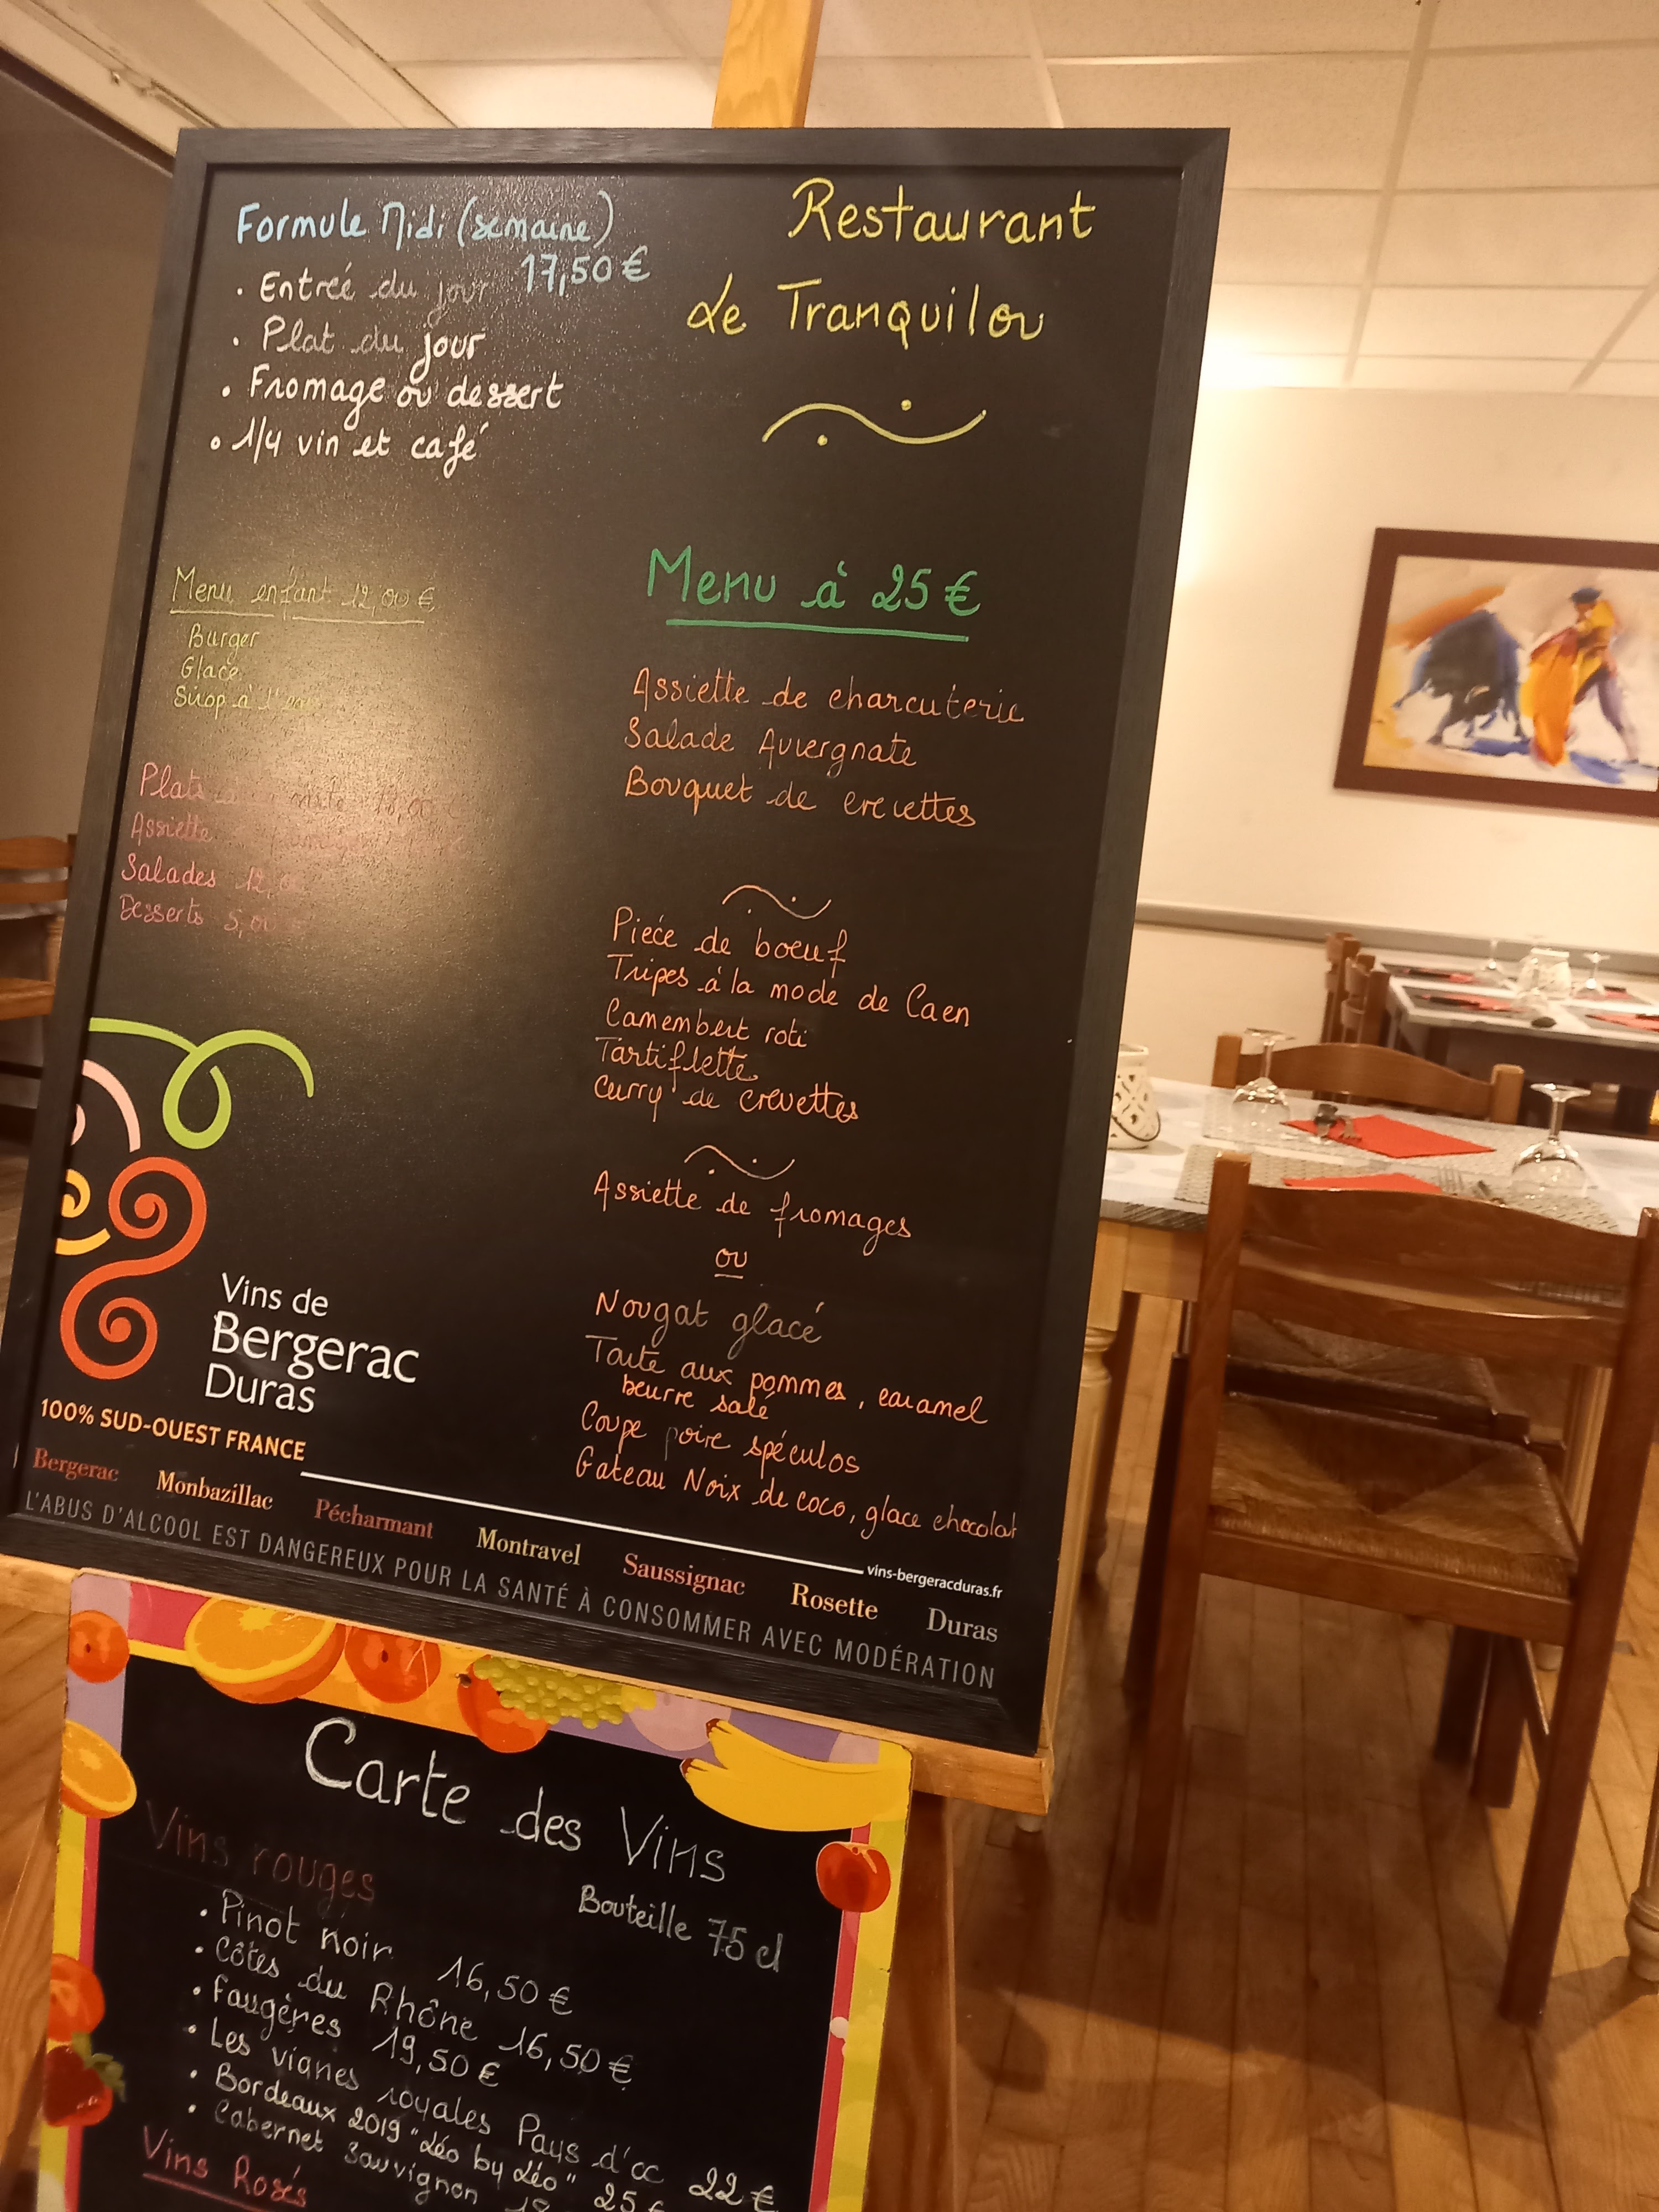 Formule Midi (semaine)
17,50 €
• Entreé du jour
• Plat du jour
• Fromage ou dessert
• 1/4 vin et café
Menu enfant 12,00 €
Burger
Glace
Sirop à l'eau
Plats carte
Assiette
Salades 12,00
Desserts 5,00
Restaurant
Le Tranquilou
Menu à 25 €
Assiette de charcuterie
Salade Auvergnate
Bouquet de crevettes
Pieće de boeuf
Tripes à la mode de Caen
Camembert roti
Tartiflette
Curry de crevettes
Assiette de fromages
ou
Nougat glacé
Tarte aux pommes, caramel
beurre salé
Coupe poire spéculos
Gateau Noix de coco, glace chocolat
Vins de
Bergerac
Duras
100% SUD-OUEST FRANCE
vins-bergeracduras.fr
Bergerac Monbazillac Pécharmant Montravel Saussignac Rosette Duras
L'ABUS D'ALCOOL EST DANGEREUX POUR LA SANTÉ À CONSOMMER AVEC MODÉRATION
Carte des Vins
Vins rouges
Bouteille 75 cl
• Pinot noir 16,50 €
• Côtes du Rhône 16,50 €
• Faugères 19,50 €
• Les vignes royales Pays d'oc 22 €
• Bordeaux 2019 "Léo by Léo" 25 €
• Cabernet Sauvignon
Vins Rosés